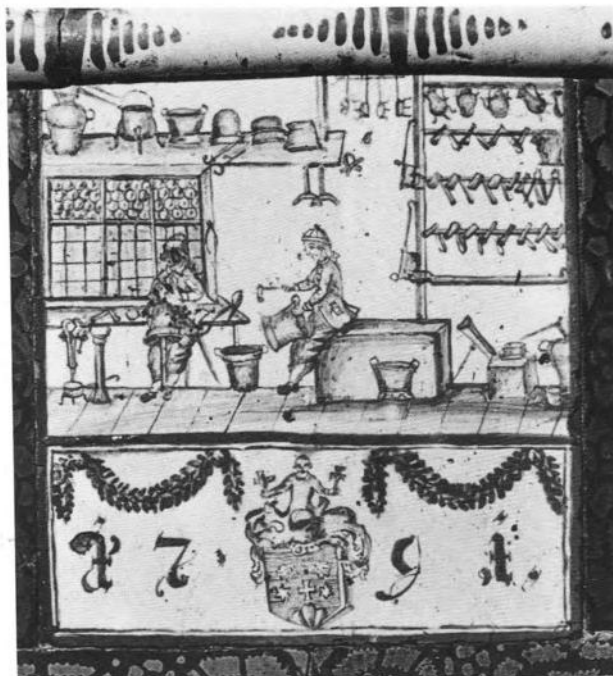 1 7. 9 1.